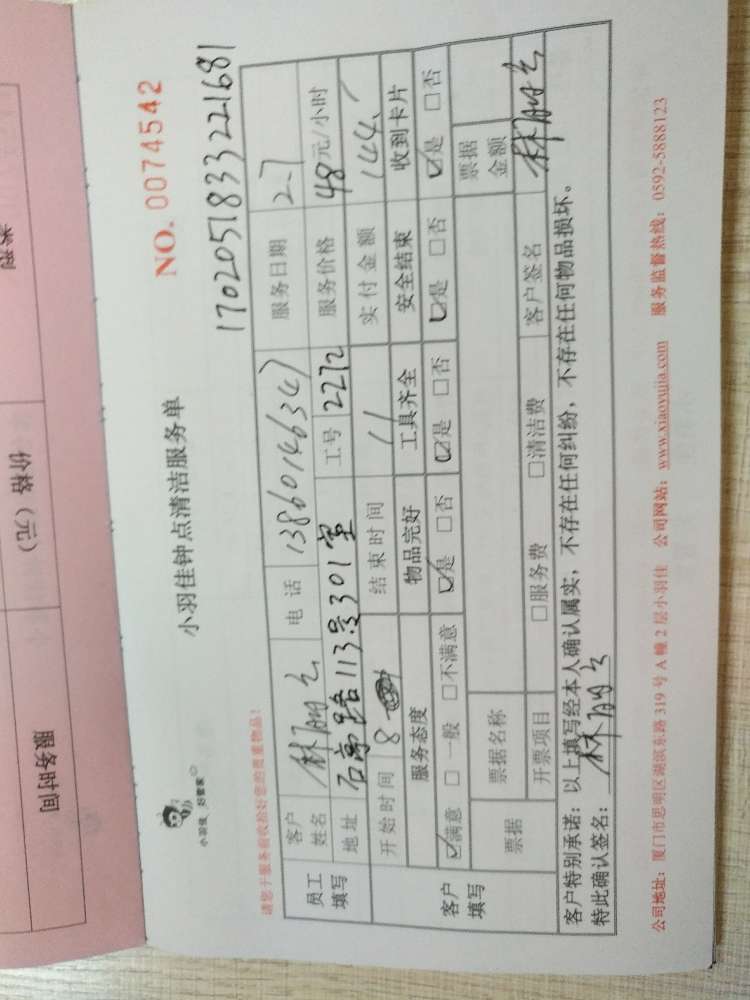 小羽佳 好管家
小羽佳钟点清洁服务单
NO. 0074542
1702051833221681
请您于服务前收拾好您的贵重物品！
员工填写
客户姓名
电话 13860146347
服务日期 2.7
地址 石亭路113号301室
工号 2272
服务价格 48元/小时
开始时间 8
结束时间 11
实付金额 144、
客户填写
服务态度 物品完好 工具齐全 安全结束 收到卡片
☑满意 □一般 □不满意 ☑是 □否 ☑是 □否 ☑是 □否 ☑是 □否
票据 票据名称 票据金额
开票项目 □服务费 □清洁费 客户签名
客户特别承诺：以上填写经本人确认属实，不存在任何纠纷，不存在任何物品损坏。
特此确认签名：
公司地址：厦门市思明区湖滨东路319号A幢2层小羽佳 公司网站：www.xiaoyujia.com 服务监督热线：0592-5888123
类别
价格（元）
服务时间